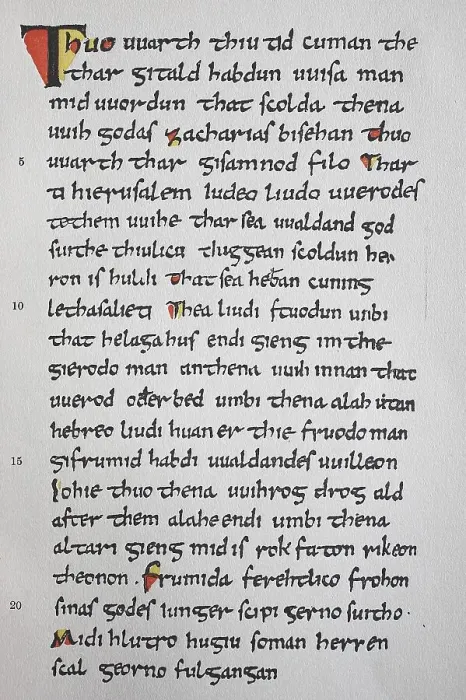 Thuo uuarth thiu tid cuman the
thar gitald habdun uuisa man
mid uuordun that scolda thena
uuih godas zacharias bisehan thuo
5 uuarth thar gisamnod filo Thar
ti hierusalem Iudeo liudo uuerodes
te them uuihe thar sea uualdand god
suithe thiulico thiggean scoldun her
ron is huldi That sea heban cuning
10 lethas alieti Thea liudi stuodun umbi
that helaga hus endi gieng im thie
gierodo man an thena uuih innan that
uuerod oder bed umbi thena alah utan
hebreo liudi huan er thie fruodo man
15 gifrumid habdi uualdandes uuilleon
So hie thuo thena uuihrog drog ald
after them alaha endi umbi thena
altari gieng mid is rokfaton rikeon
theonon. Frumida ferehtlico frohon
20 sinas godes iungerscipi gerno suitho.
Midi hluttro hugiu so man herren
scal georno fulgangan